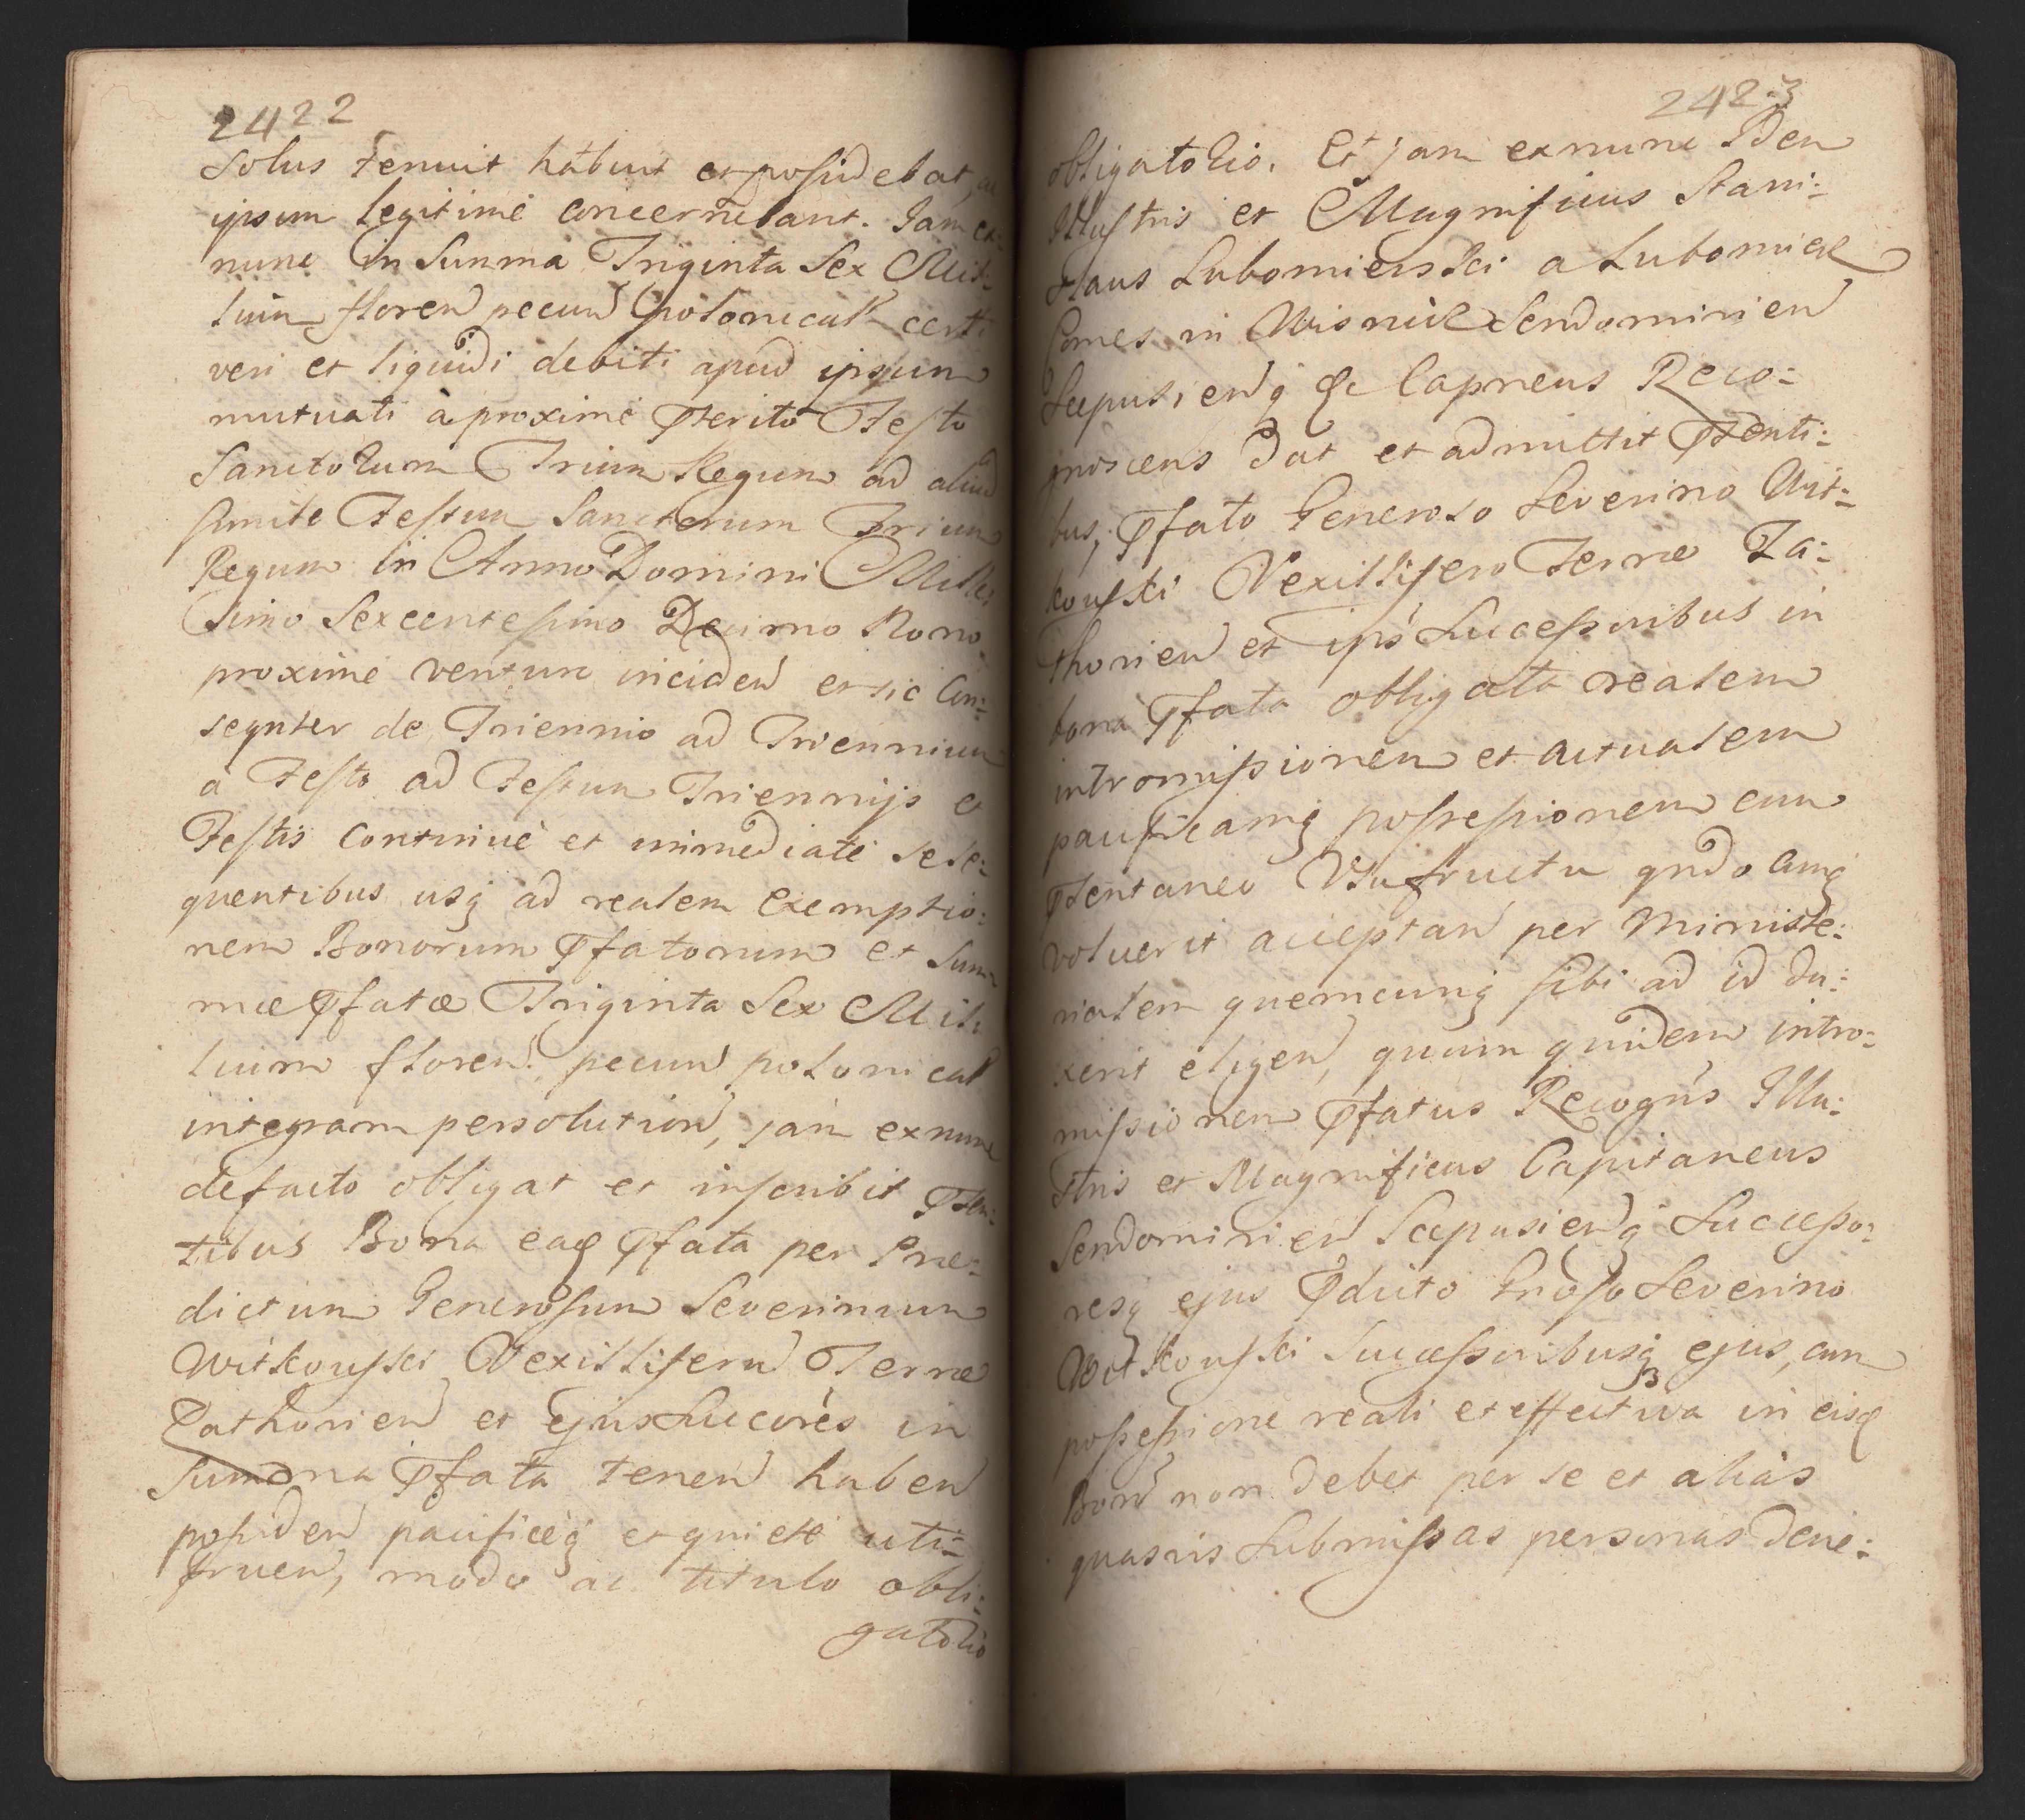 2422
Solus tenuit habuit et possidebat, ac
ipsum legitimè concernebant. Jam ex:
nunc in Summa Triginta Sex Mil:
lium floren pecun polonicali certi
veri et liquidi debiti apud ipsum
mutuati à proximè pterito Festo
Sanctorum Trium Regum ad aliud
simile Festum Sanctorum Trium
Regum in Anno Domini Mille
simo Sexcentesimo Decimo Nono
proximè venturo inciden et sic Con:
seqnter de Triennio ad Triennium
a Festo ad Festum Triennijs et
Festis Continuè et immediatè sese:
quentibus usq ad realem Exemptio:
nem Bonorum Pfatorum et Sum
mæ Pfatæ Triginta Sex Mil
lium floren. pecun polonical
integram persolution, jam exnunc
defacto obligat et inscribit Pten:
tibus Bona eaq Pfata per Præ:
dictum Generosum Severinum
Witkowski Vexilliferu Terræ
Zathorien et ejus Succorès in
Summa Pfata tenen haben
possiden pacificèq et quietè uti:
fruen, modo ac titulo obli:
gatorio
2423
obligatorio. Et jam exnunc Iden
Illustris et Magnificus Stani:
slaus Lubomierski a Lubomierz
Comes in Wisnicz Sendomirien
Scepusienq &c Capneus Reco:
gnoscens dat et admittit Ptenti:
bus, Pfato Generoso Severino Wit:
kowski Vexillifero Terræ Za:
thorien et ips Successoribus in
bona Pfata obligata realem
intromissionem et actualem
pacificamq possessionem cum
Ptentaneo Usufructu qndo Cunq
voluerit acceptan per Ministe:
rialem quemcunq sibi ad id du:
xerit eligen, quam quidem intro:
missionem Pfatus Recogns Illu:
stris et Magnificus Capitaneus
Sendomirien Scepusienq Successo:
resq ejus Pdicto Gnoso Severino
Witkowski Successoribusq ejus, cum
possessione reali et effectiva in eisq
Bonis non debet per se et alias
quasvis Submissas personas dene: